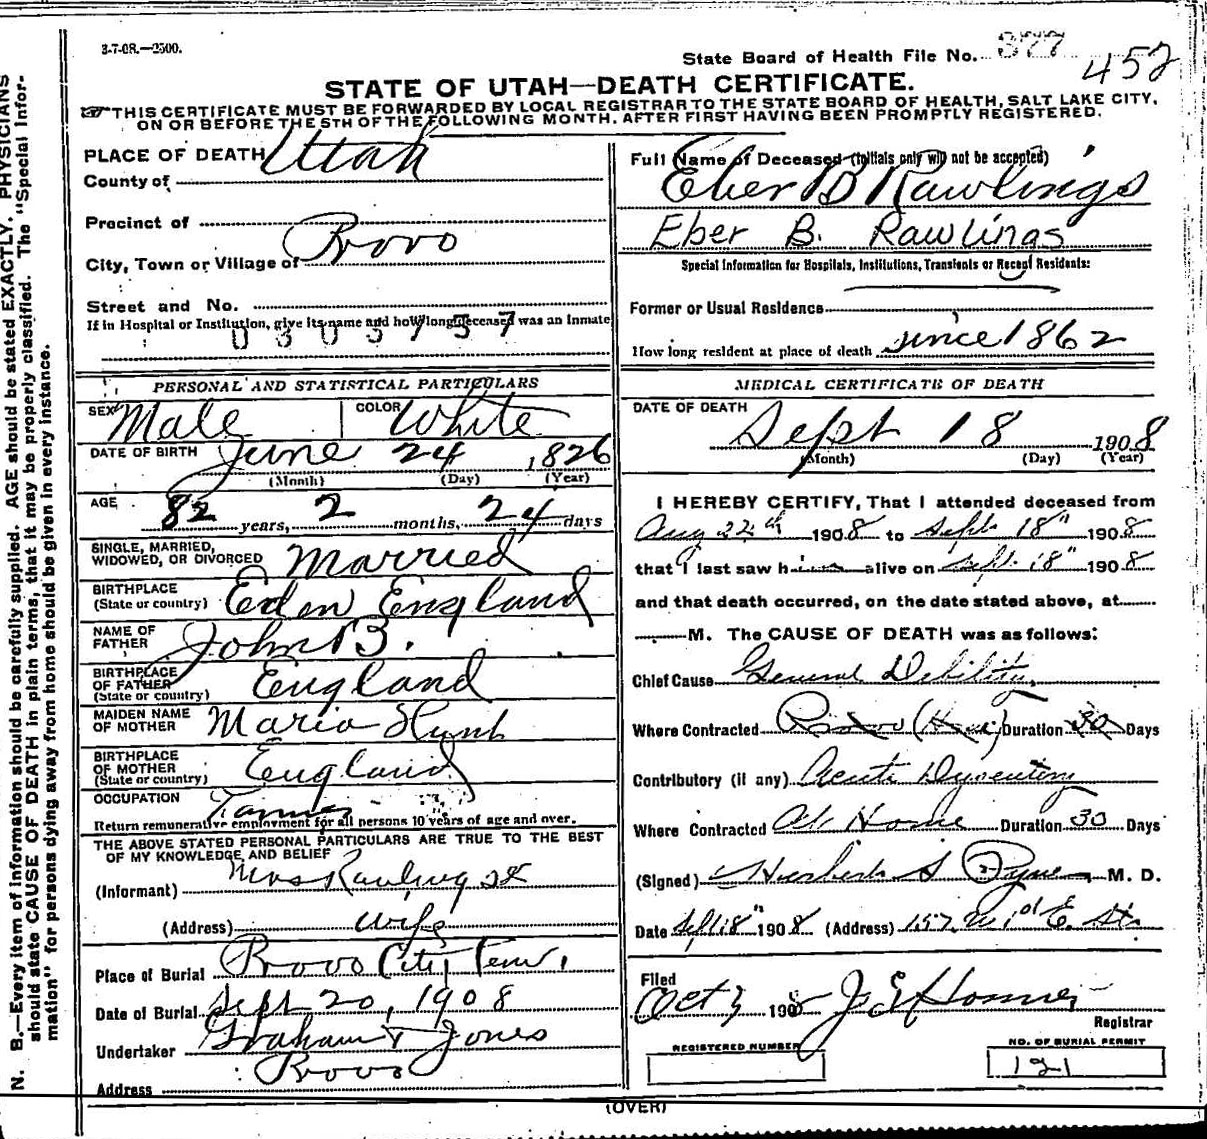 3-7-08.—2500.
State Board of Health File No. 377
452
STATE OF UTAH—DEATH CERTIFICATE.
THIS CERTIFICATE MUST BE FORWARDED BY LOCAL REGISTRAR TO THE STATE BOARD OF HEALTH, SALT LAKE CITY,
ON OR BEFORE THE 5TH OF THE FOLLOWING MONTH, AFTER FIRST HAVING BEEN PROMPTLY REGISTERED.
PLACE OF DEATH
County of Utah
Precinct of
City, Town or Village of Provo
Street and No.
If in Hospital or Institution, give its name and how long deceased was an Inmate
0303737
Full Name of Deceased (Initials only will not be accepted)
Eber B Rawlings
Eber B. Rawlings
Special Information for Hospitals, Institutions, Transients or Recent Residents:
Former or Usual Residence
How long resident at place of death since 1862
PERSONAL AND STATISTICAL PARTICULARS
SEX Male COLOR White
DATE OF BIRTH June 24, 1826
(Month) (Day) (Year)
AGE 82 years, 2 months, 24 days
SINGLE, MARRIED,
WIDOWED, OR DIVORCED Married
BIRTHPLACE
(State or country) Eden England
NAME OF
FATHER John B.
BIRTHPLACE
OF FATHER
(State or country) England
MAIDEN NAME
OF MOTHER Maria Hunt
BIRTHPLACE
OF MOTHER
(State or country) England
OCCUPATION Tanner
Return remunerative employment for all persons 10 years of age and over.
THE ABOVE STATED PERSONAL PARTICULARS ARE TRUE TO THE BEST
OF MY KNOWLEDGE AND BELIEF
(Informant) Mrs Rawlings Sr
(Address) Wife
Place of Burial Provo City Cem.
Date of Burial Sept 20, 1908
Undertaker Graham & Jones
Address Provo
MEDICAL CERTIFICATE OF DEATH
DATE OF DEATH
Sept 18 1908
(Month) (Day) (Year)
I HEREBY CERTIFY, That I attended deceased from
Aug 22th 1908 to Sept 18" 1908
that I last saw him alive on Sept. 18" 1908
and that death occurred, on the date stated above, at
M. The CAUSE OF DEATH was as follows:
Chief Cause General Debility
Where Contracted Provo Duration 30 Days
Contributory (if any) Acute Dysentery
Where Contracted At Home Duration 30 Days
(Signed) Herbert S Pyne M. D.
Date Sept 18" 1908 (Address) 157 E. St.
Filed
Oct 3 1908 J E Hosmer
Registrar
REGISTERED NUMBER
NO. OF BURIAL PERMIT
121
(OVER)
N. B.—Every item of information should be carefully supplied. AGE should be stated EXACTLY. PHYSICIANS
should state CAUSE OF DEATH in plain terms, that it may be properly classified. The "Special Infor-
mation" for persons dying away from home should be given in every instance.